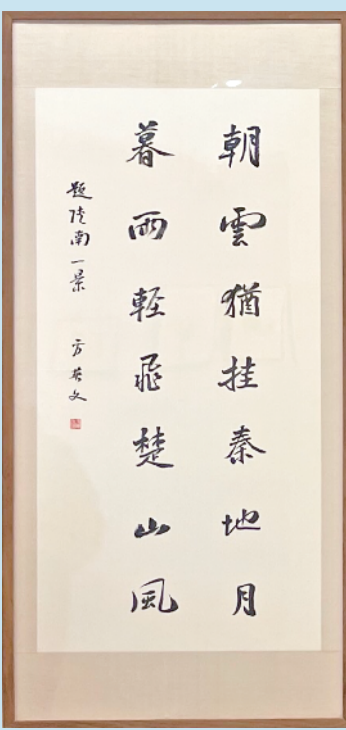 朝雲猶挂秦地月
暮雨輕飛楚山風
題陝南一景 方英文